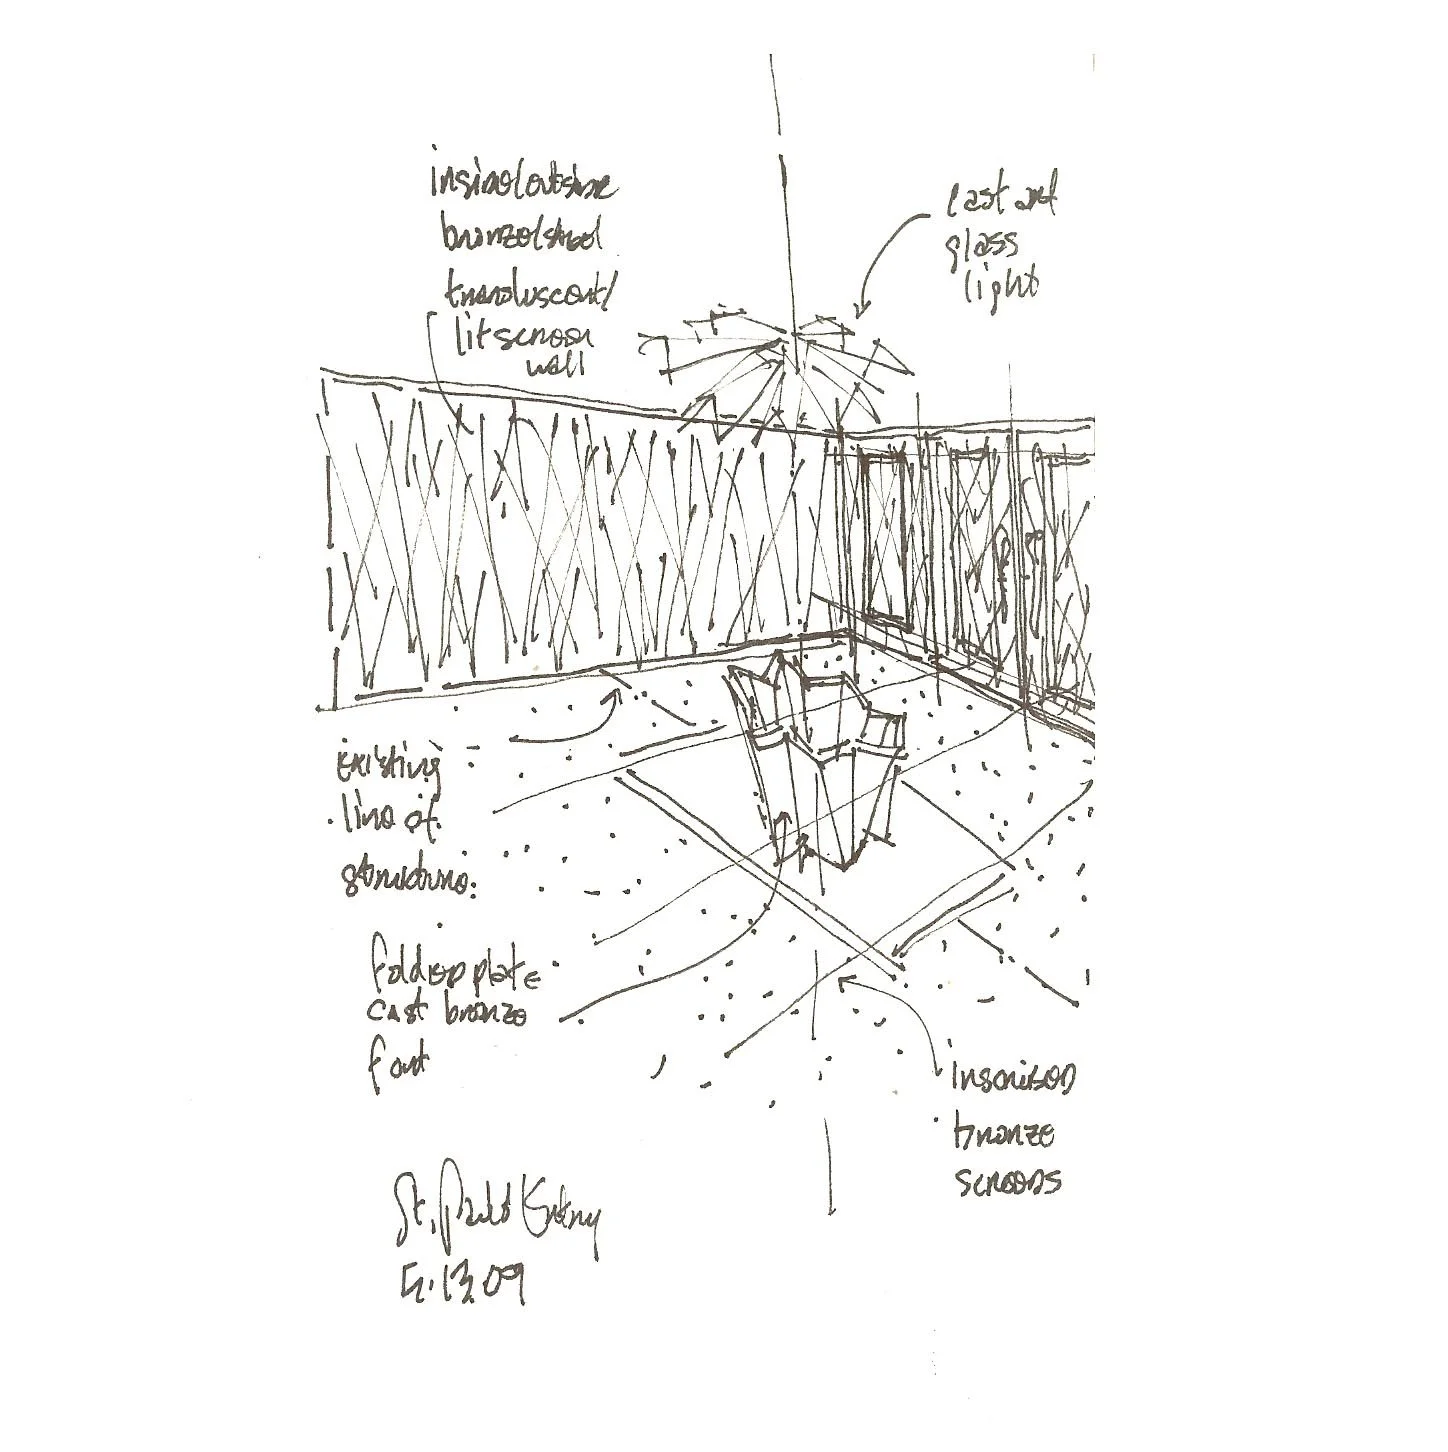 inside/outside
bronze/steel
transluscent/
lit screen
wall
cast art
glass
light
existing
line of
structure.
folded plate
cast bronze
font
inscribed
bronze
screens
St. Paul's Entry
5.13.09